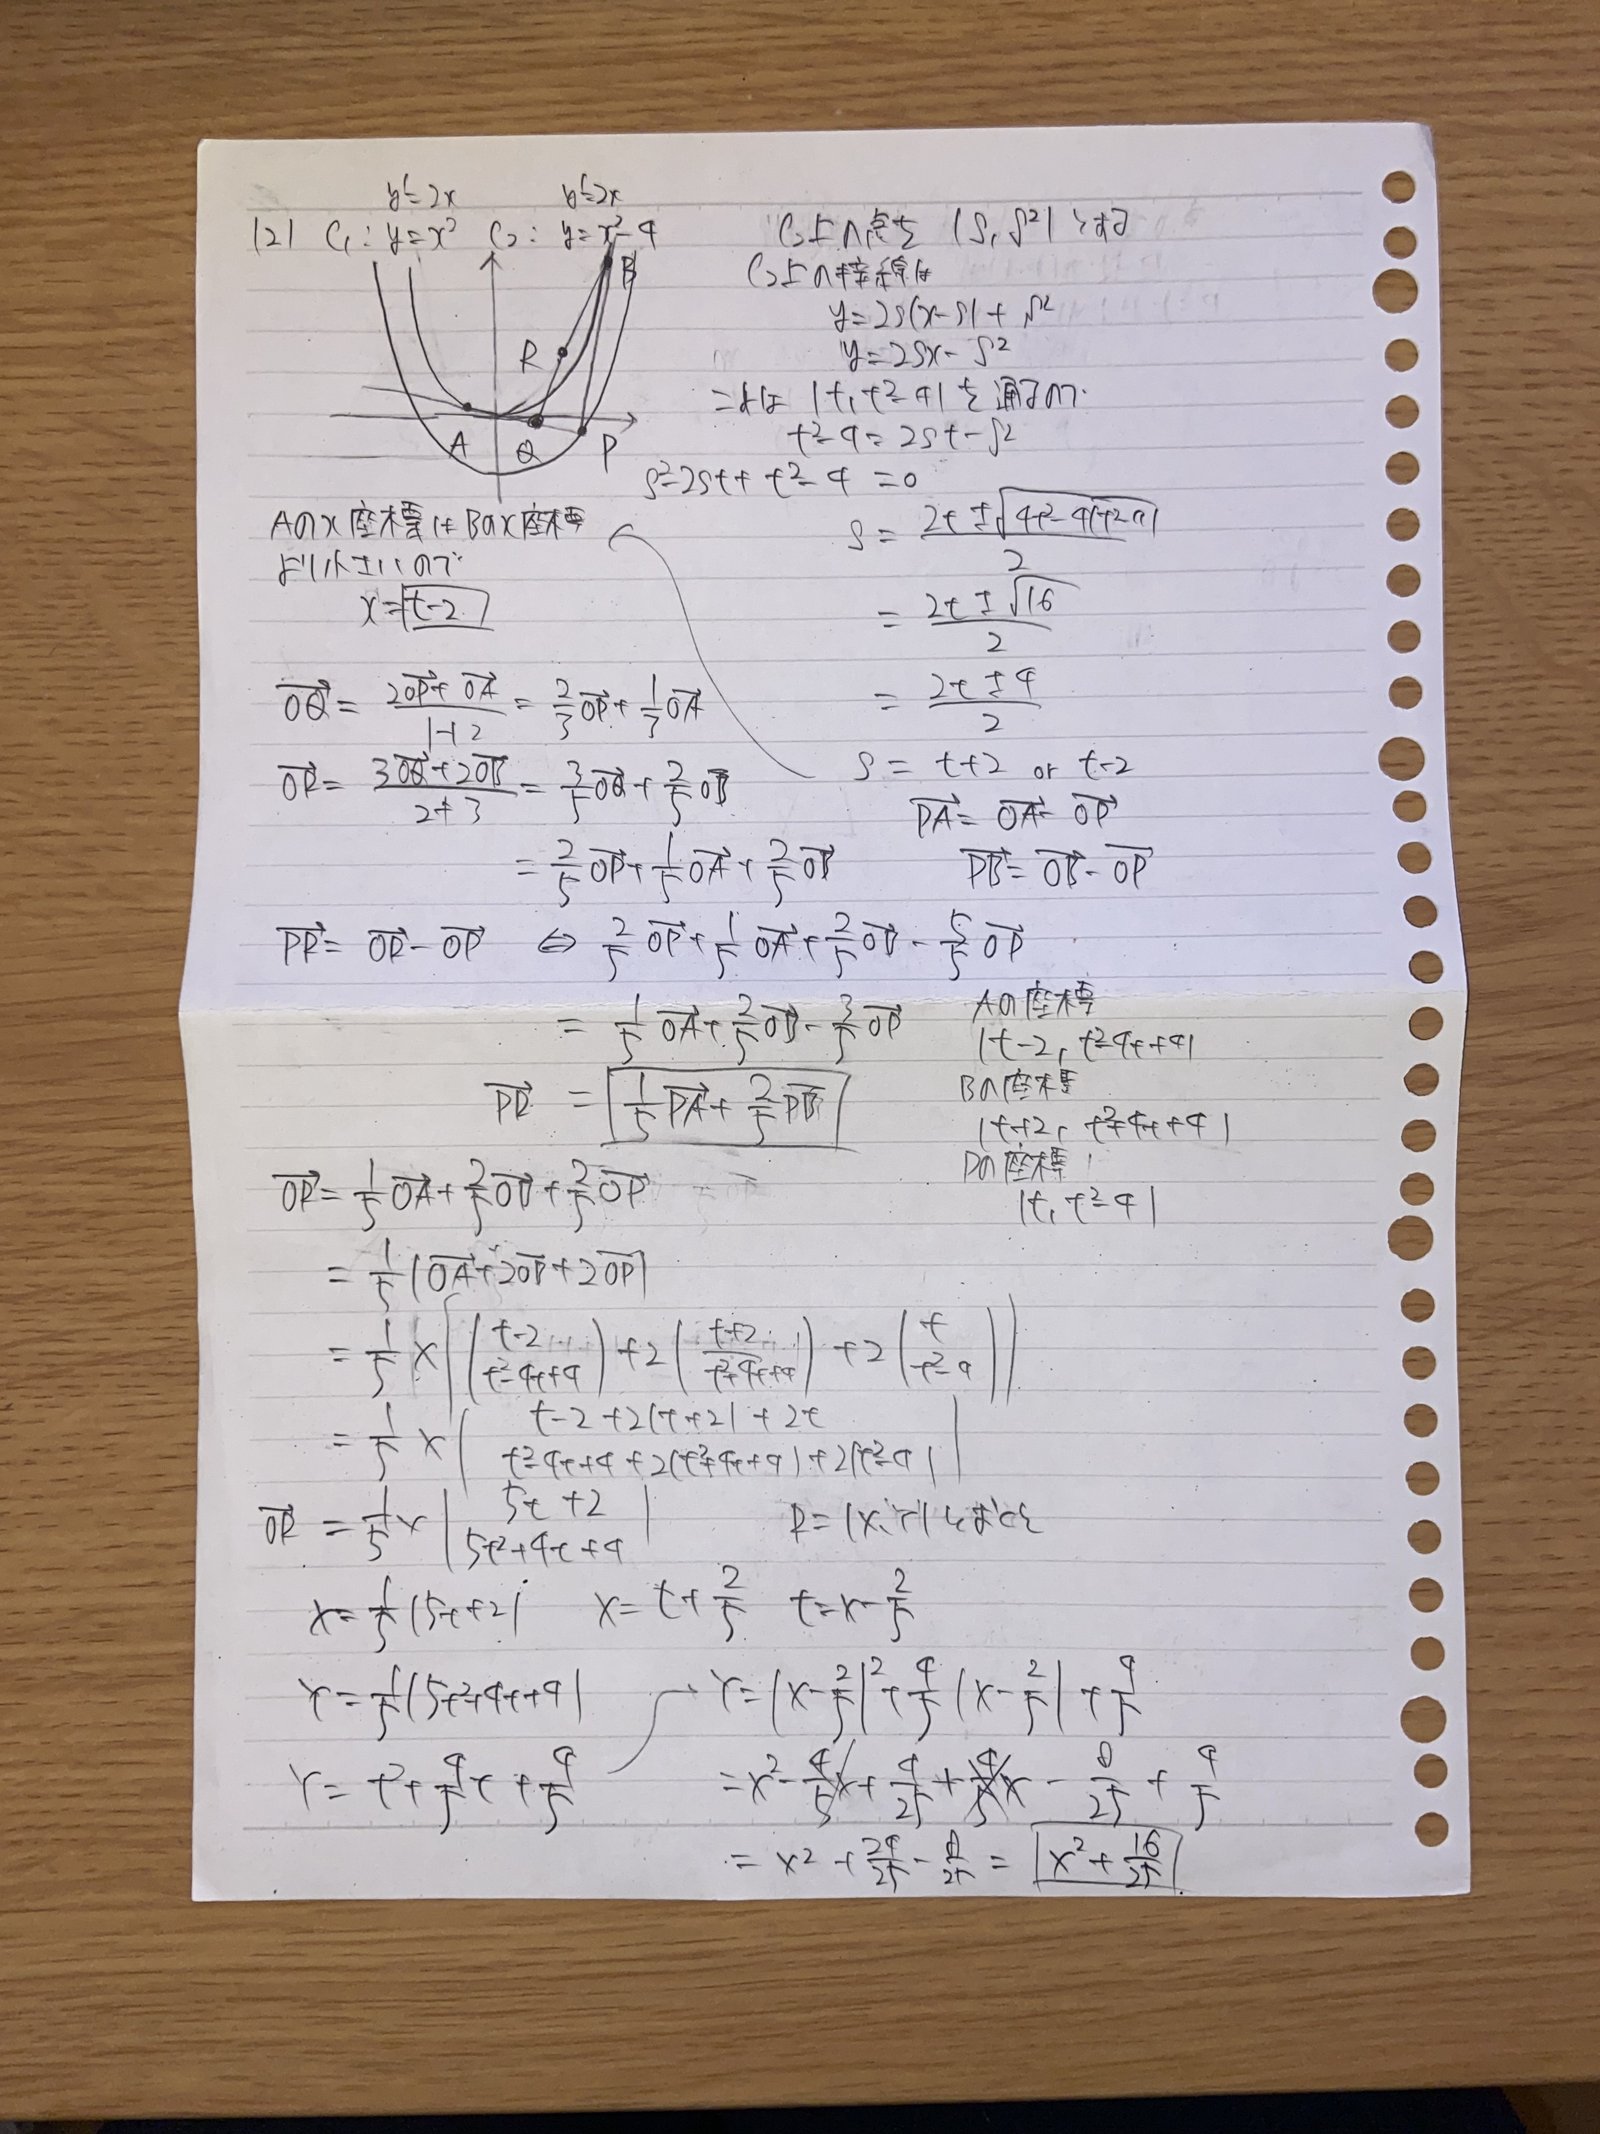 y'=2x y'=2x
(2) C₁: y=x² C₂: y=x²-4
B
R
A Q P
C₂上の点を (s, s²) とする
C₂上の接線は
y=2s(x-s)+s²
y=2sx-s²
これは (t, t²-4) を通るので
t²-4=2st-s²
s²-2st+t²-4=0
s=\frac{2t±\sqrt{4t²-4(t²-4)}}{2}
=\frac{2t±\sqrt{16}}{2}
=\frac{2t±4}{2}
s=t+2 or t-2
Aのx座標はBのx座標
より小さいので
x=t-2
\vec{OQ}=\frac{2\vec{OP}+\vec{OA}}{1+2}=\frac{2}{3}\vec{OP}+\frac{1}{3}\vec{OA}
\vec{OR}=\frac{3\vec{OQ}+2\vec{OB}}{2+3}=\frac{3}{5}\vec{OQ}+\frac{2}{5}\vec{OB}
=\frac{2}{5}\vec{OP}+\frac{1}{5}\vec{OA}+\frac{2}{5}\vec{OB}
\vec{PA}=\vec{OA}-\vec{OP}
\vec{PB}=\vec{OB}-\vec{OP}
\vec{PR}=\vec{OR}-\vec{OP} ⇔ \frac{2}{5}\vec{OP}+\frac{1}{5}\vec{OA}+\frac{2}{5}\vec{OB}-\frac{5}{5}\vec{OP}
=\frac{1}{5}\vec{OA}+\frac{2}{5}\vec{OB}-\frac{3}{5}\vec{OP}
\vec{PR}=\frac{1}{5}\vec{PA}+\frac{2}{5}\vec{PB}
Aの座標
(t-2, t²-4t+4)
Bの座標
(t+2, t²+4t+4)
Pの座標
(t, t²-4)
\vec{OR}=\frac{1}{5}\vec{OA}+\frac{2}{5}\vec{OB}+\frac{2}{5}\vec{OP}
=\frac{1}{5}(\vec{OA}+2\vec{OB}+2\vec{OP})
=\frac{1}{5}×((t-2, t²-4t+4)+2(t+2, t²+4t+4)+2(t, t²-4))
=\frac{1}{5}×(t-2+2(t+2)+2t
t²-4t+4+2(t²+4t+4)+2(t²-4))
\vec{OR}=\frac{1}{5}×(5t+2
5t²+4t+4) R=(X, Y)とおくと
X=\frac{1}{5}(5t+2) X=t+\frac{2}{5} t=X-\frac{2}{5}
Y=\frac{1}{5}(5t²+4t+4)
Y=t²+\frac{4}{5}t+\frac{4}{5}
Y=(X-\frac{2}{5})²+\frac{4}{5}(X-\frac{2}{5})+\frac{4}{5}
=X²-\frac{4}{5}X+\frac{4}{25}+\frac{4}{5}X-\frac{8}{25}+\frac{4}{5}
=X²+\frac{24}{25}-\frac{8}{25}=X²+\frac{16}{25}